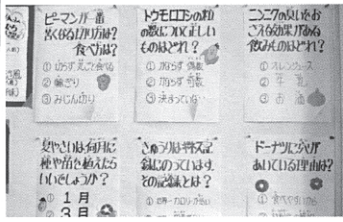 ピーマンが一番
苦くなる切り方は?
食べ方は?
① 切らず丸ごと食べる
② 輪ぎり
③ みじん切り
トウモロコシの粒
の数について正しい
ものはどれ?
① かならず偶数
② かならず奇数
③ 決まっていない
ニンニクの臭いをお
さえる効果がある
飲みものはどれ?
① オレンジジュース
② 牛乳
③ お酒
夏やさいは何月に
種や苗を植えたら
いいでしょうか?
① 1月
② 3月
きゅうりはギネス記
録にのっています。
その記録とは?
① 世界一カロリーが低い
ドーナツに穴が
あいている理由は?
① 食べやすい